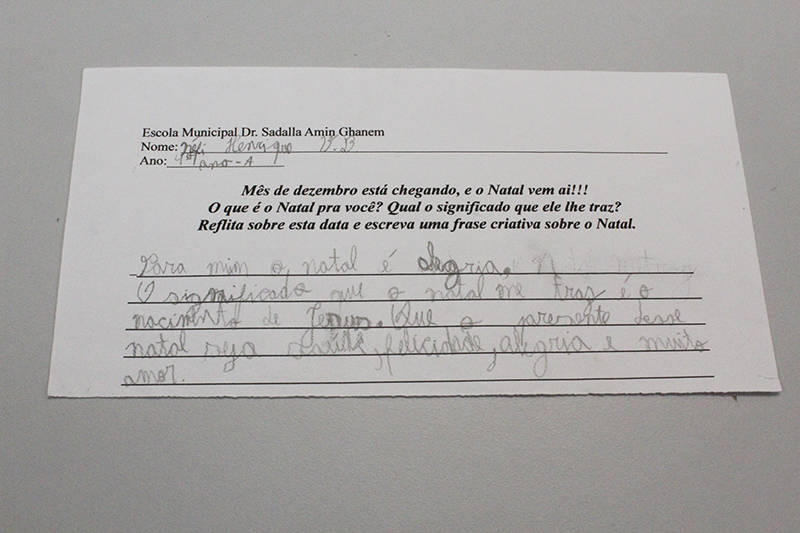 Escola Municipal Dr. Sadalla Amin Ghanem
Nome: Henrique V.B
Ano: 4º ano - A
Mês de dezembro está chegando, e o Natal vem ai!!!
O que é o Natal pra você? Qual o significado que ele lhe traz?
Reflita sobre esta data e escreva uma frase criativa sobre o Natal.
Para mim o natal é alegria.
O significado que o natal me traz é o
nacimento de Jesus. Que o presente desse
natal seja saúde, felicidade, alegria e muito
amor.